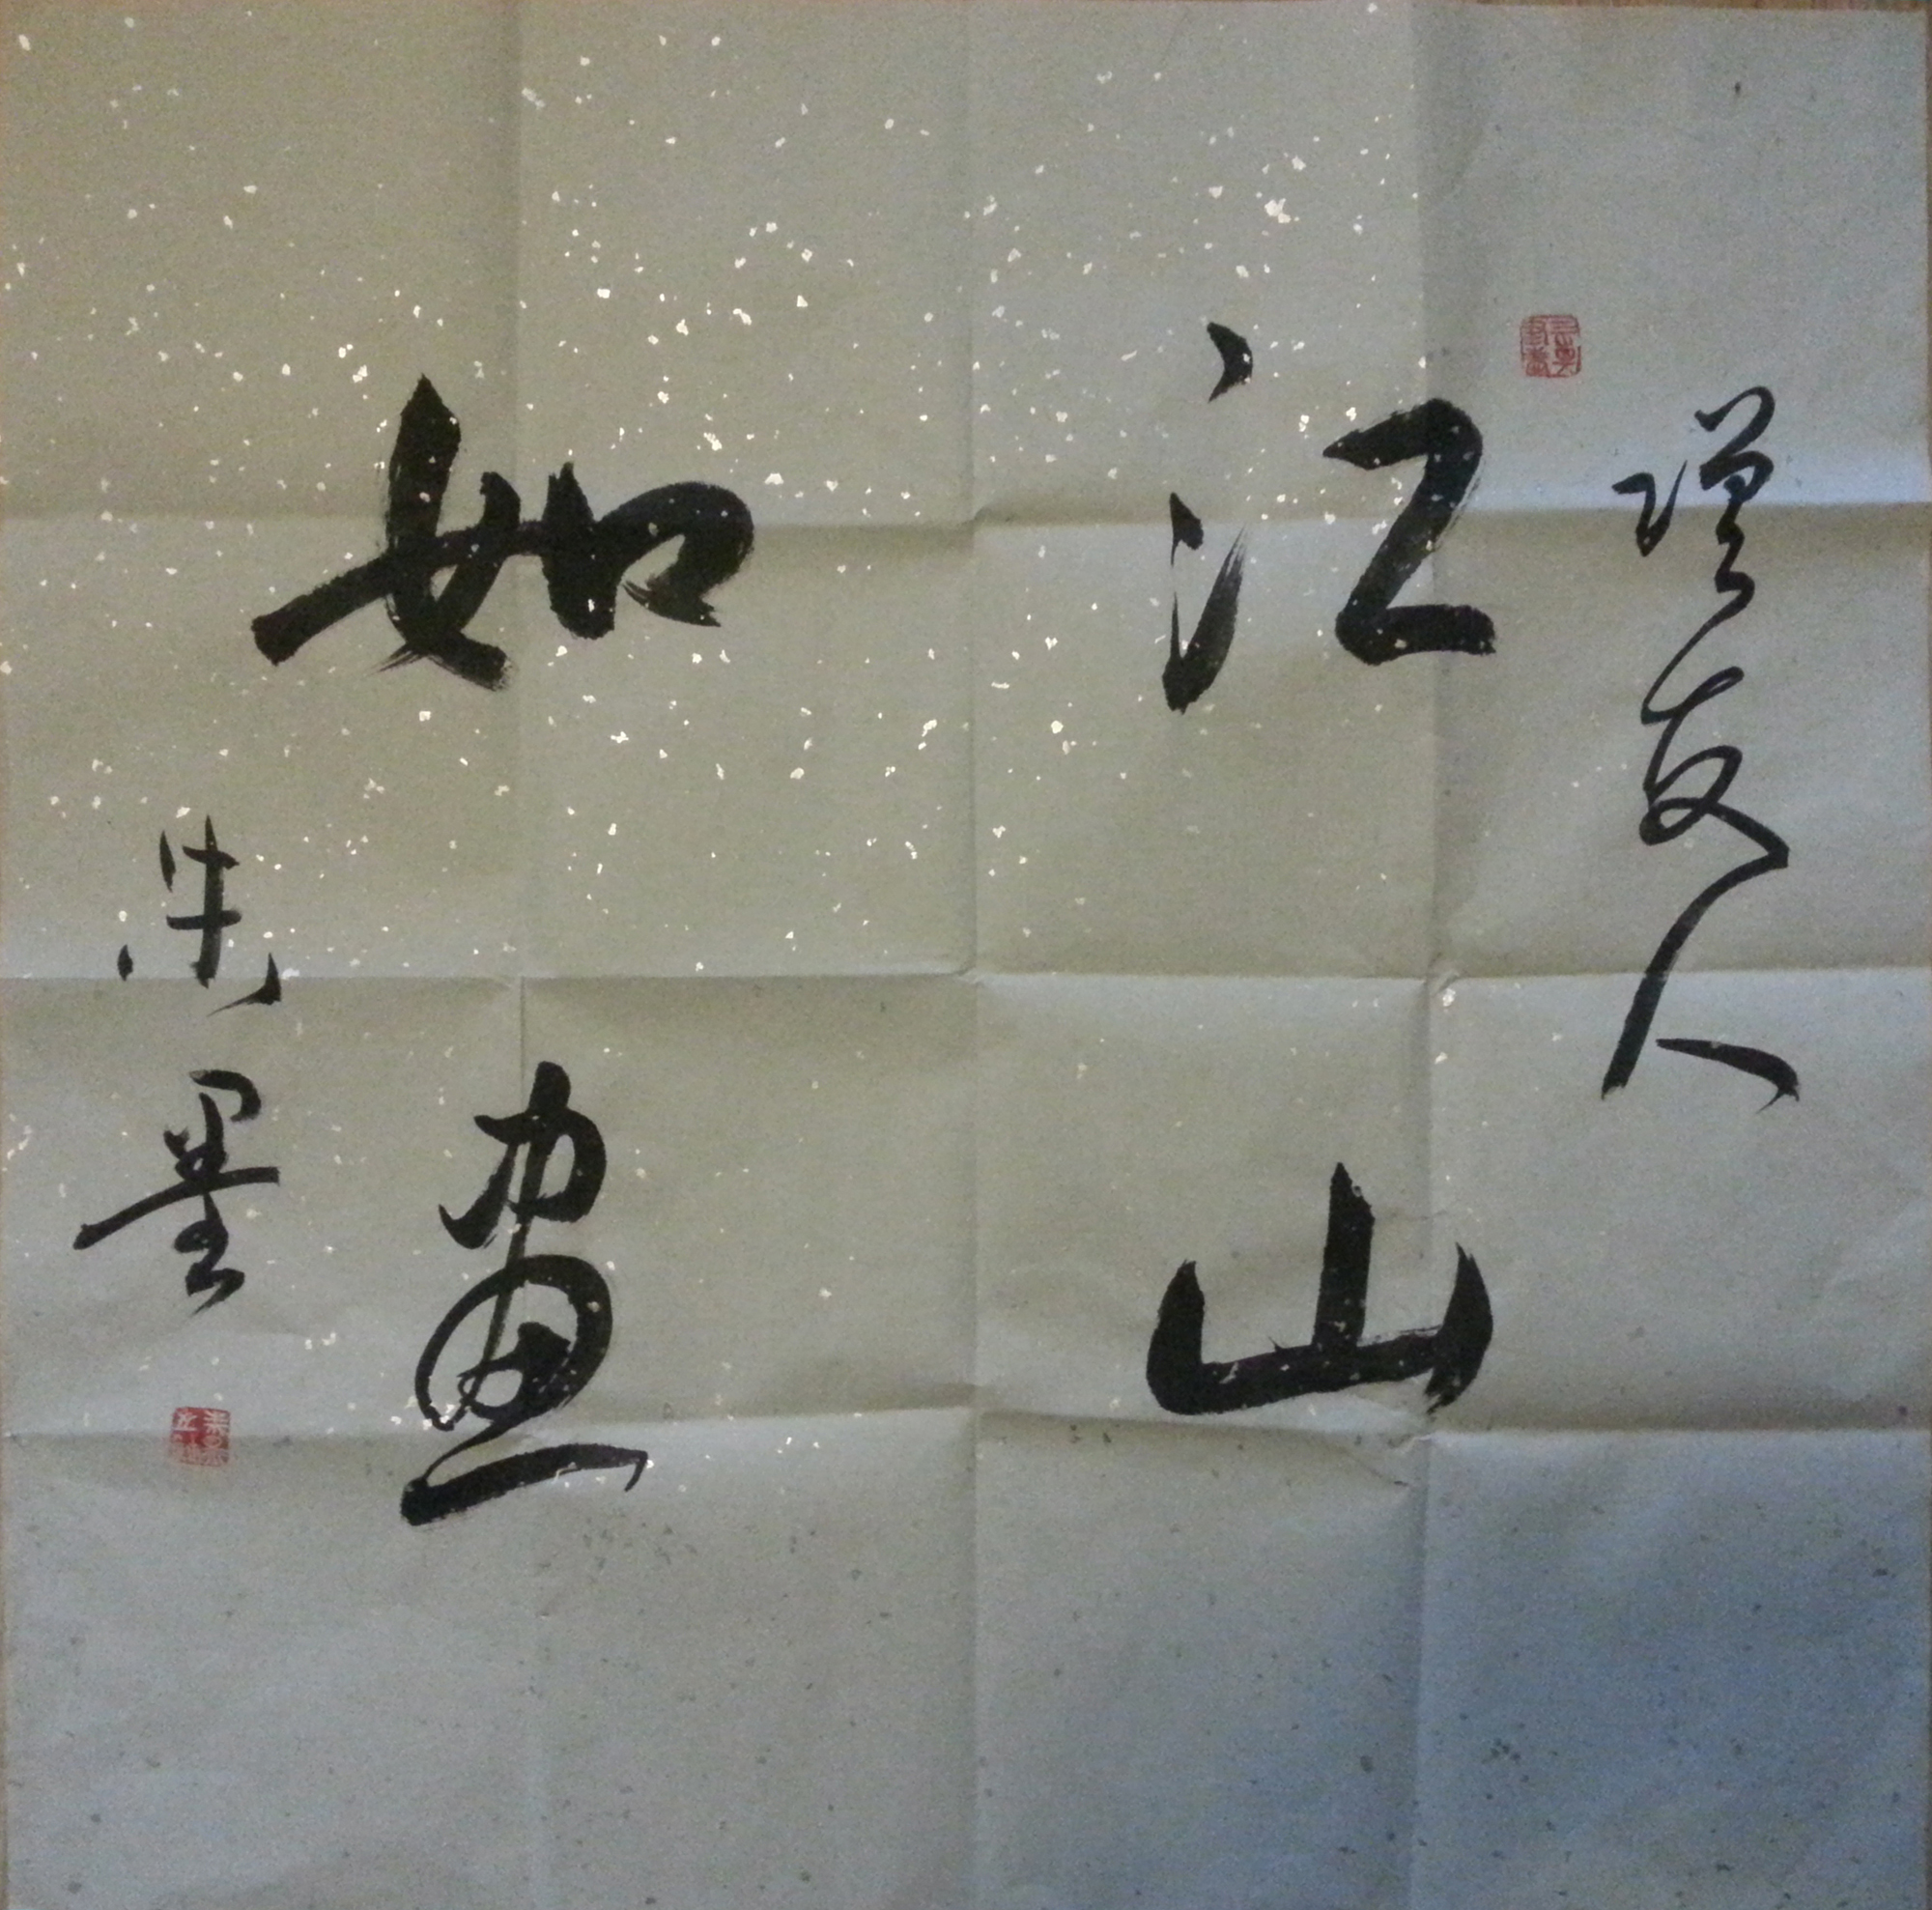 赠友人
江山
如画
朱墨